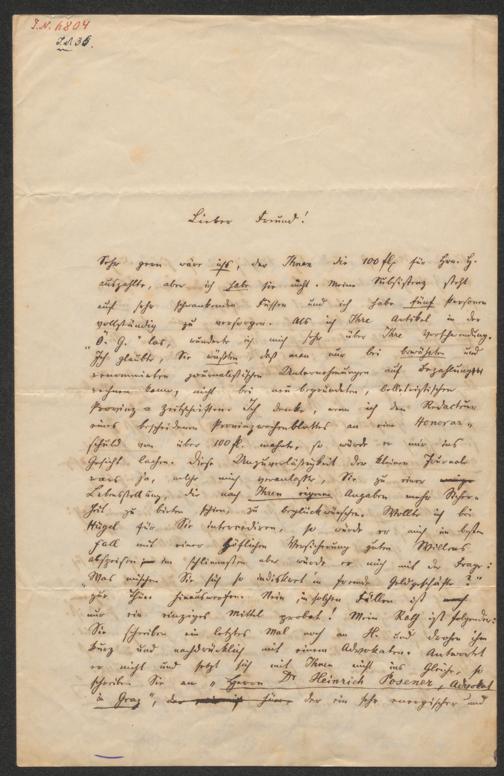 I.N. 6804
Lieber Freund!
Sehr gern wäre ich's, der Ihnen die 100 fl. für Hrn. H.
auszahlte, aber ich habe sie nicht. Meine Subsistenz steht
auf sehr schwankenden Füssen und ich habe fünf Personen
vollständig zu versorgen. Als ich Ihre Artikel in der
„Ö. G." las, wunderte ich mich sehr über Ihre Verschwendung.
Ich glaubte, Sie wüßten, daß man nur bei bewährten und
renommirten journalistischen Unternehmungen auf Bezahlung
rechnen kann, nicht bei neu begründeten, belletristischen
Provinz-Zeitschriften. Ich denke, wenn ich den Redacteur
eines bescheidenen Provinzwochenblattes an eine Honorar-
schuld von über 100 fl. mahnte, so würde er mir ins
Gesicht lachen. Diese Unzuverläßigkeit der kleinen Journale
war ja, welche mich veranlaßte, Sie zu einer
Lebensstellung, die nach Ihren eigenen Angaben mehr Sicher-
heit zu bieten schien, zu beglückwünschen. Wollte ich bei
Hügel für Sie intercediren, so würde er mich im besten
Fall mit einer höflichen Versicherung guten Willens
abspeisen, im schlimmsten aber würde er mich mit der Frage:
„Was mischen Sie sich so indiskret in fremde Geldgeschäfte?"
zur Thüre hinauswerfen. Nein, in solchen Fällen ist
nur ein einziges Mittel probat! Mein Rath ist folgender:
Sie schreiben ein letztes Mal noch an H. und drohen ihm
kurz und nachdrücklich mit einem Advokaten. Antwortet
er nicht und setzt sich mit Ihnen nicht ins Gleiche, so
schreiben Sie an „Herrn Dr Heinrich Posener, Advokat
in Graz", der ein sehr energischer und